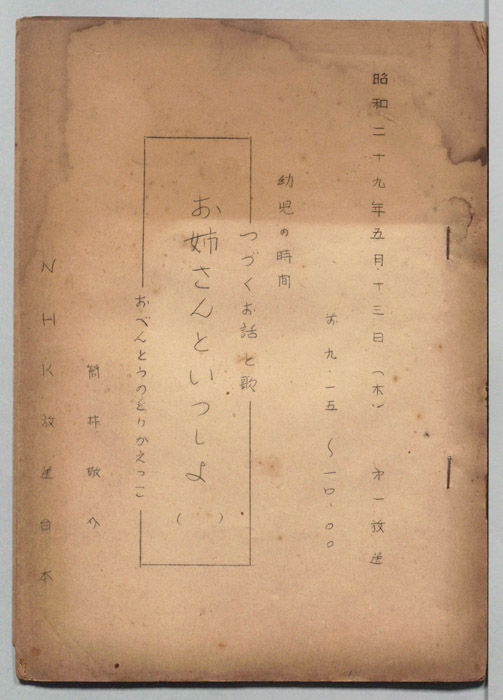 昭和二十九年五月十三日（木） 第一放送
前 九・一五 〜 一〇・〇〇
幼児の時間
つづくお話と歌
お姉さんといつしよ（ ）
おべんとうのとりかえっこ
筒井敬介
NHK放送台本